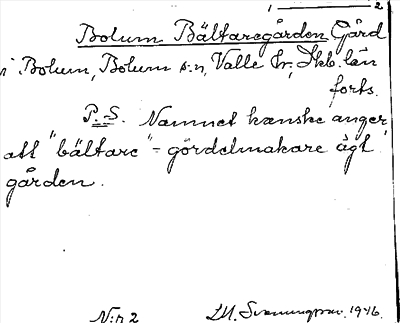 1 — 2
Bolum Bältaregården Gård
i Bolum, Bolum s:n, Valle hr, Skb. län
forts.
P.S. Namnet kanske anger
att "bältare" - gördelmakare ägt
gården.
N:r 2 1946.